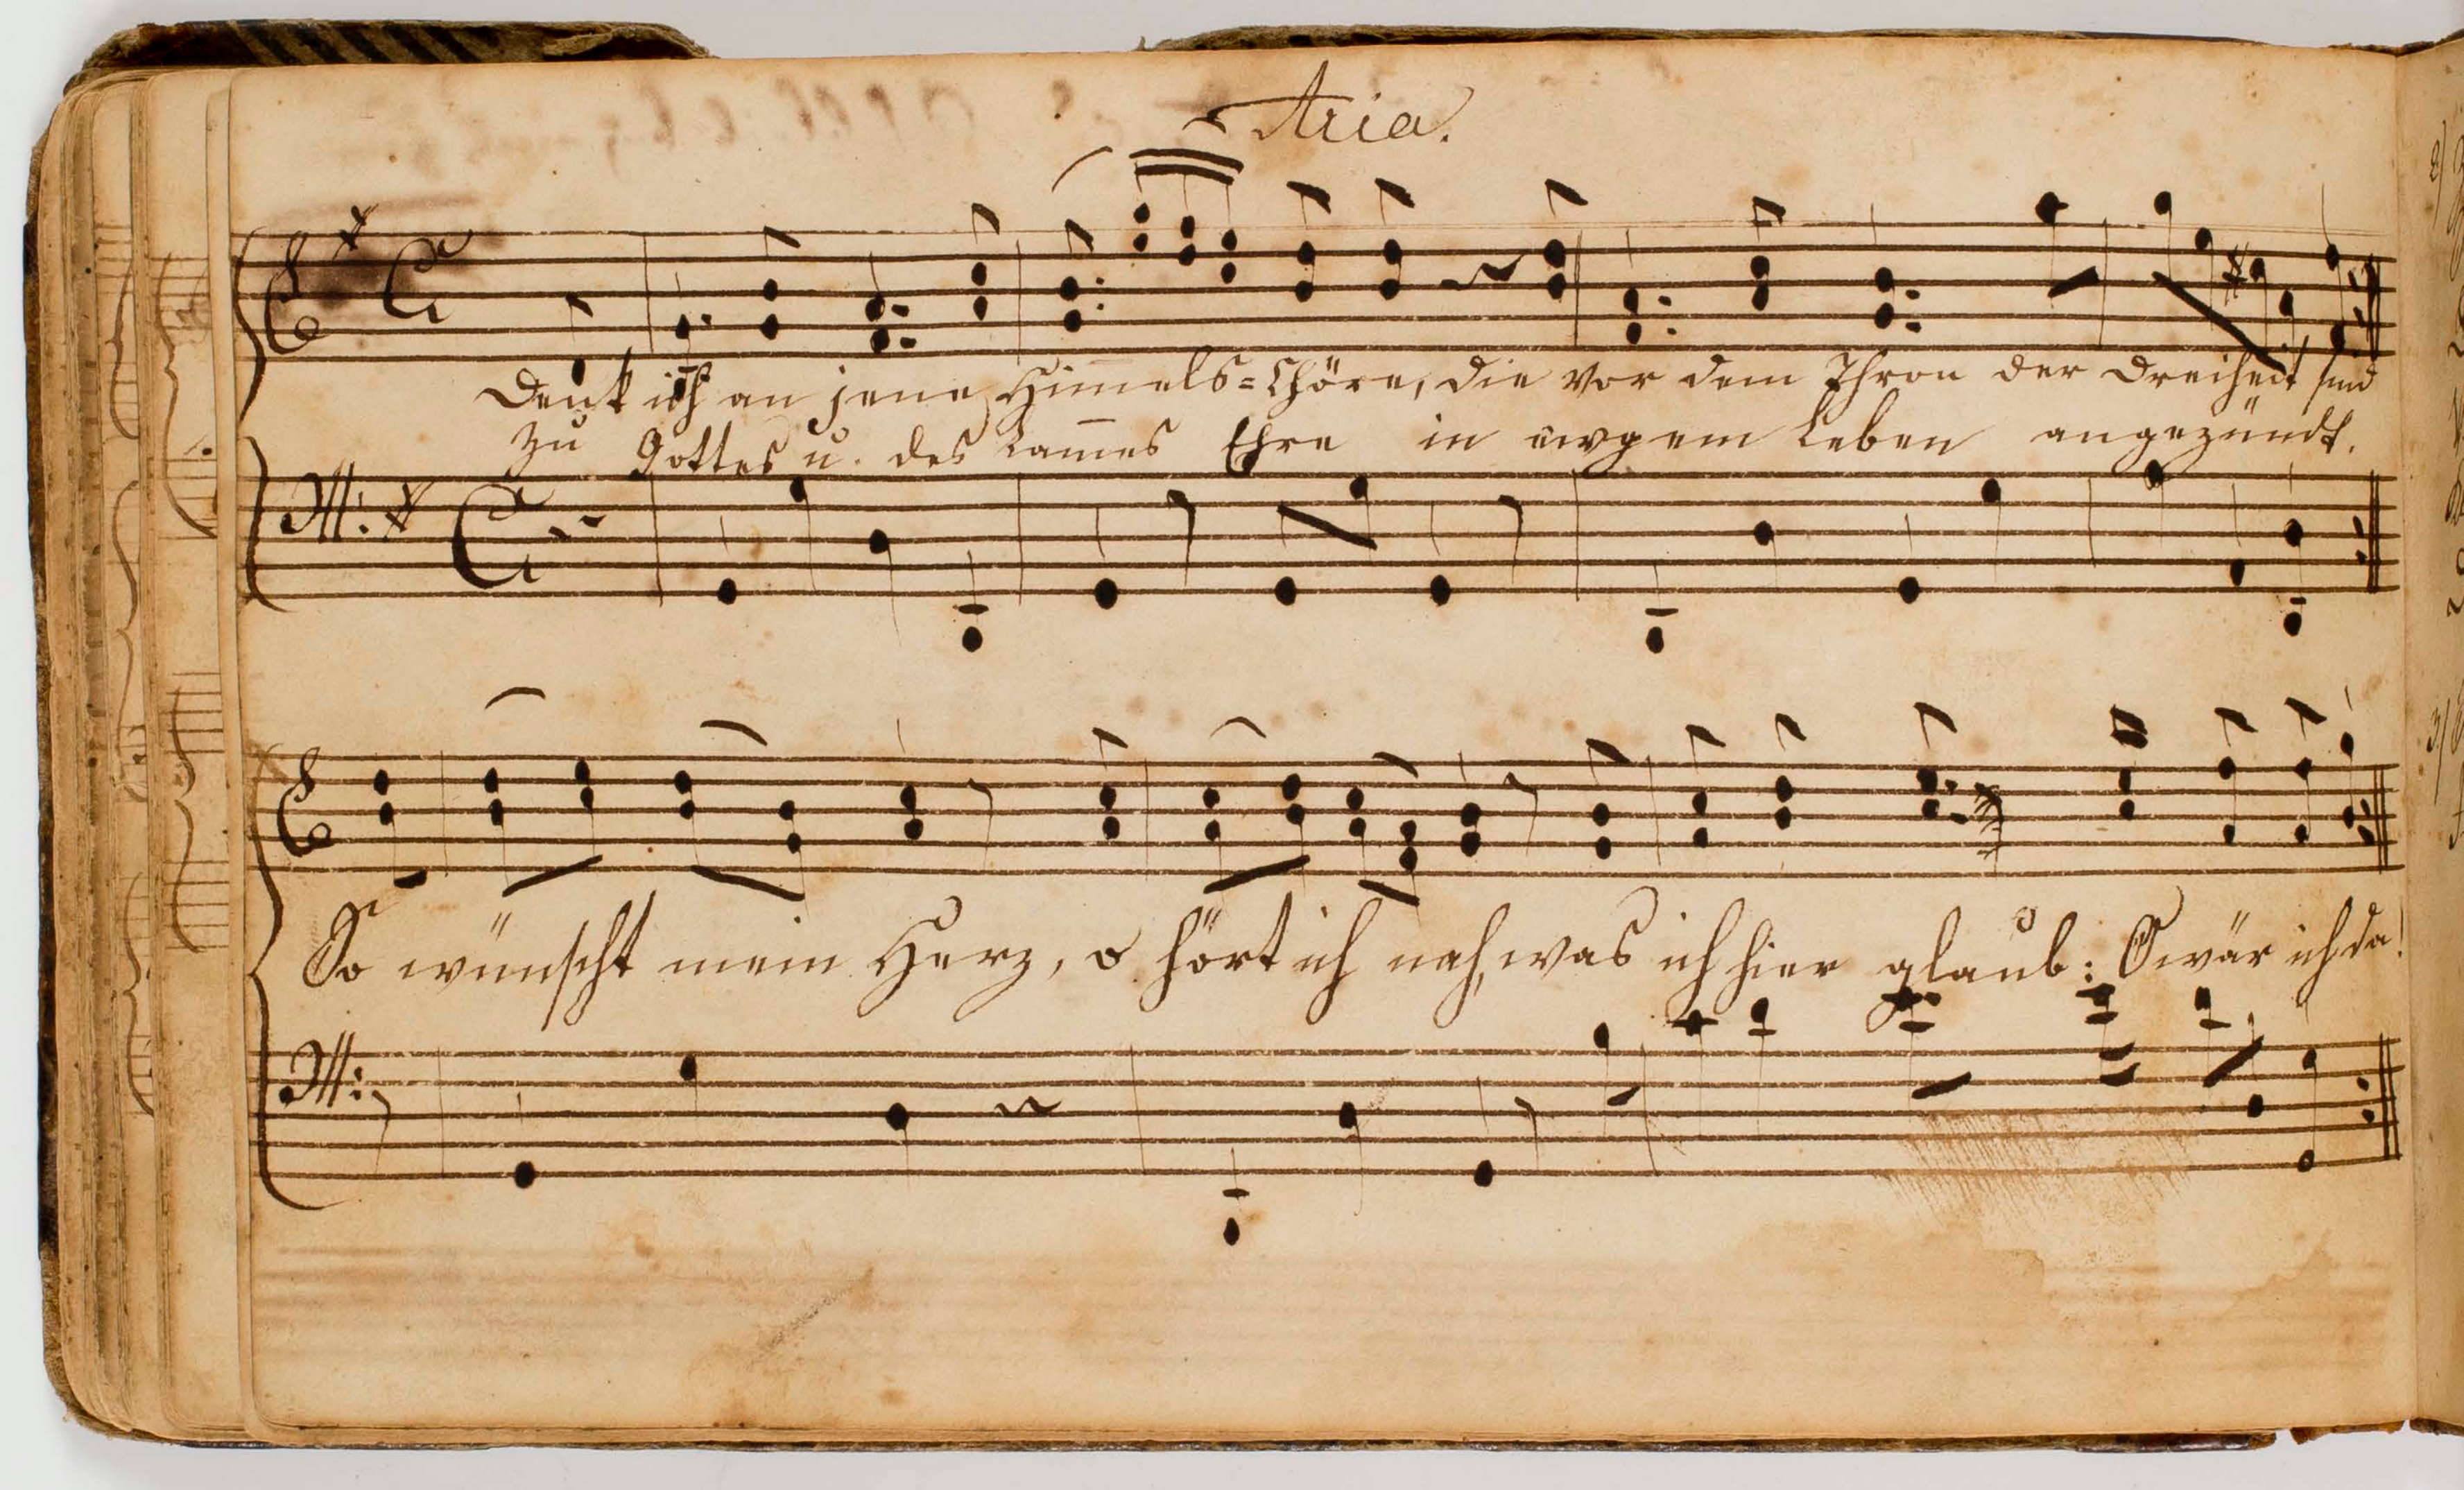 Aria.
Denk ich an jene Him̅els=Chöre, die vor dem Thron der Dreiheit sind
zu Gottes u. des Lam̅es Ehre in ewgem Leben angezündt.
So wünscht mein Herz, o hört ich nah, was ich hier glaub: O wär ich da!